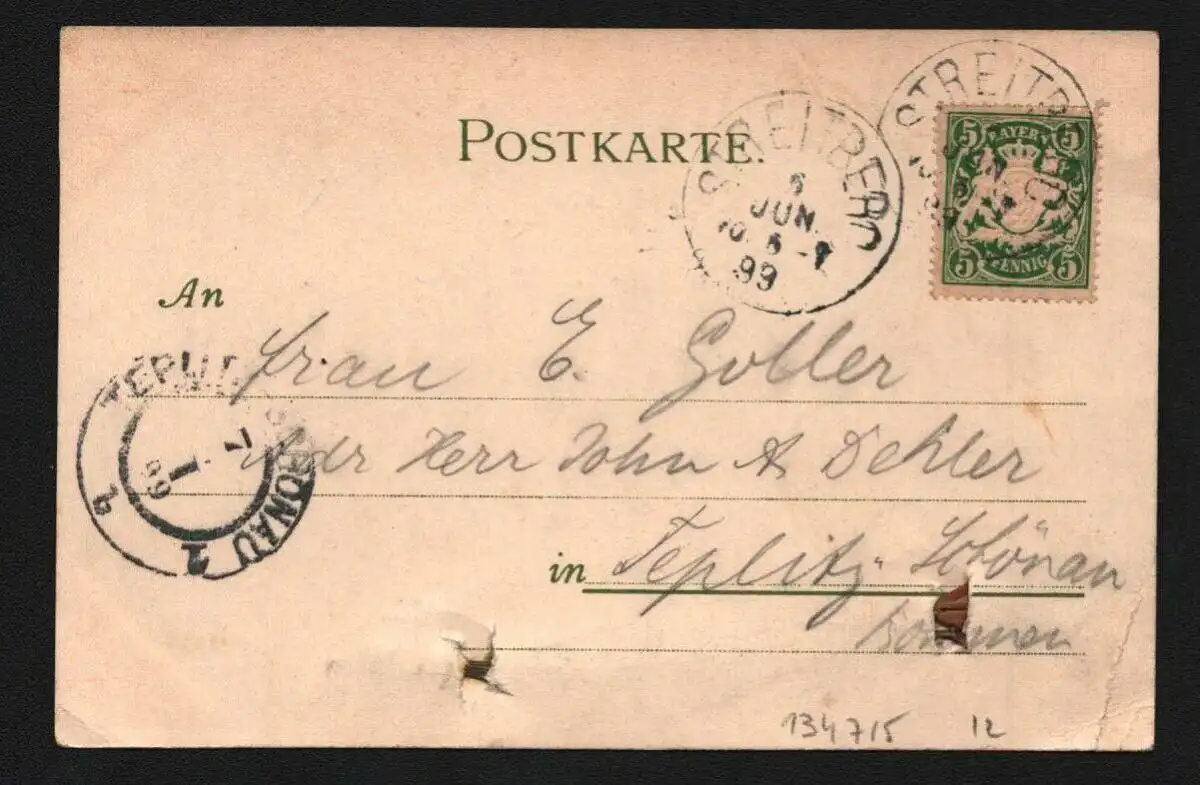 POSTKARTE.
STREITBERG
6
JUN.
99
STREITB
JUN
5 BAYERN 5
5 PFENNIG 5
An Frau E. Goller
Adr Herr John A Dehler
in Teplitz-Schönau
TEPLITZ SCHÖNAU 1
7
99
b
134715 12